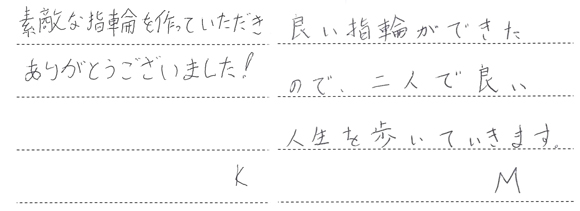 素敵な指輪を作っていただき
ありがとうございました!
K
良い指輪ができた
ので、二人で良い
人生を歩いていきます。
M